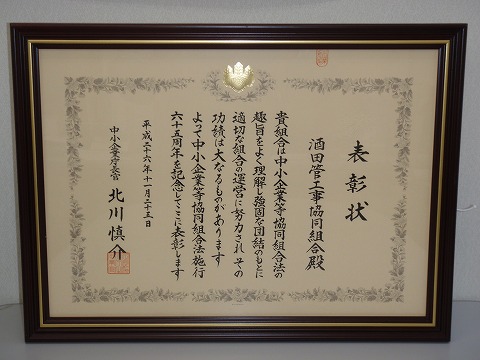 表彰状
酒田管工事協同組合殿
貴組合は中小企業等協同組合法の
趣旨をよく理解し強固な団結のもとに
適切な組合の運営に努力されその
功績は大なるものがあります
よって中小企業等協同組合法施行
六十五周年を記念してここに表彰します
平成二十六年十一月二十五日
中小企業庁長官 北川慎介